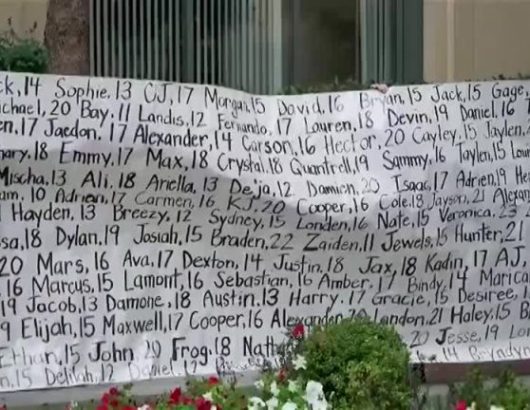 ck, 14 Sophie, 13 CJ, 17 Morgan, 15 David, 16 Bryan, 15 Jack, 15 Gage,
ichael, 20 Bay, 11 Landis, 12 Fernando, 17 Lauren, 18 Devin, 19 Daniel, 16
en, 17 Jaedon, 17 Alexander, 14 Carson, 16 Hector, 20 Cayley, 15 Jaylen,
nary, 18 Emmy, 17 Max, 18 Crystal, 18 Quantrell, 19 Sammy, 16 Taylen, 15
Mischa, 13 Ali, 18 Ariella, 13 Deja, 12 Damien, 20 Isaac, 17 Adrien, 19
am, 10 Adrian, 17 Carmen, 16 KJ, 20 Cooper, 16 Cole, 18 Jayson, 21
Hayden, 13 Breezy, 12 Sydney, 15 Londen, 16 Nate, 15 Veronica, 23
ssa, 18 Dylan, 19 Josiah, 15 Braden, 22 Zaiden, 11 Jewels, 15 Hunter, 21
20 Mars, 16 Ava, 17 Dexton, 14 Justin, 18 Jax, 18 Kadin, 17 AJ,
, 16 Marcus, 15 Lamont, 16 Sebastian, 16 Amber, 17 Bindy, 14 Marica
19 Jacob, 13 Damone, 18 Austin, 13 Harry, 17 Gracie, 15 Desiree,
9 Elijah, 15 Maxwell, 17 Cooper, 16 Alexander, 20 Landon, 21 Haley, 15
Ethan, 15 John, 20 Frog, 18 20 Jesse, 19
n, 15 Delilah, 12 Daniel, 14